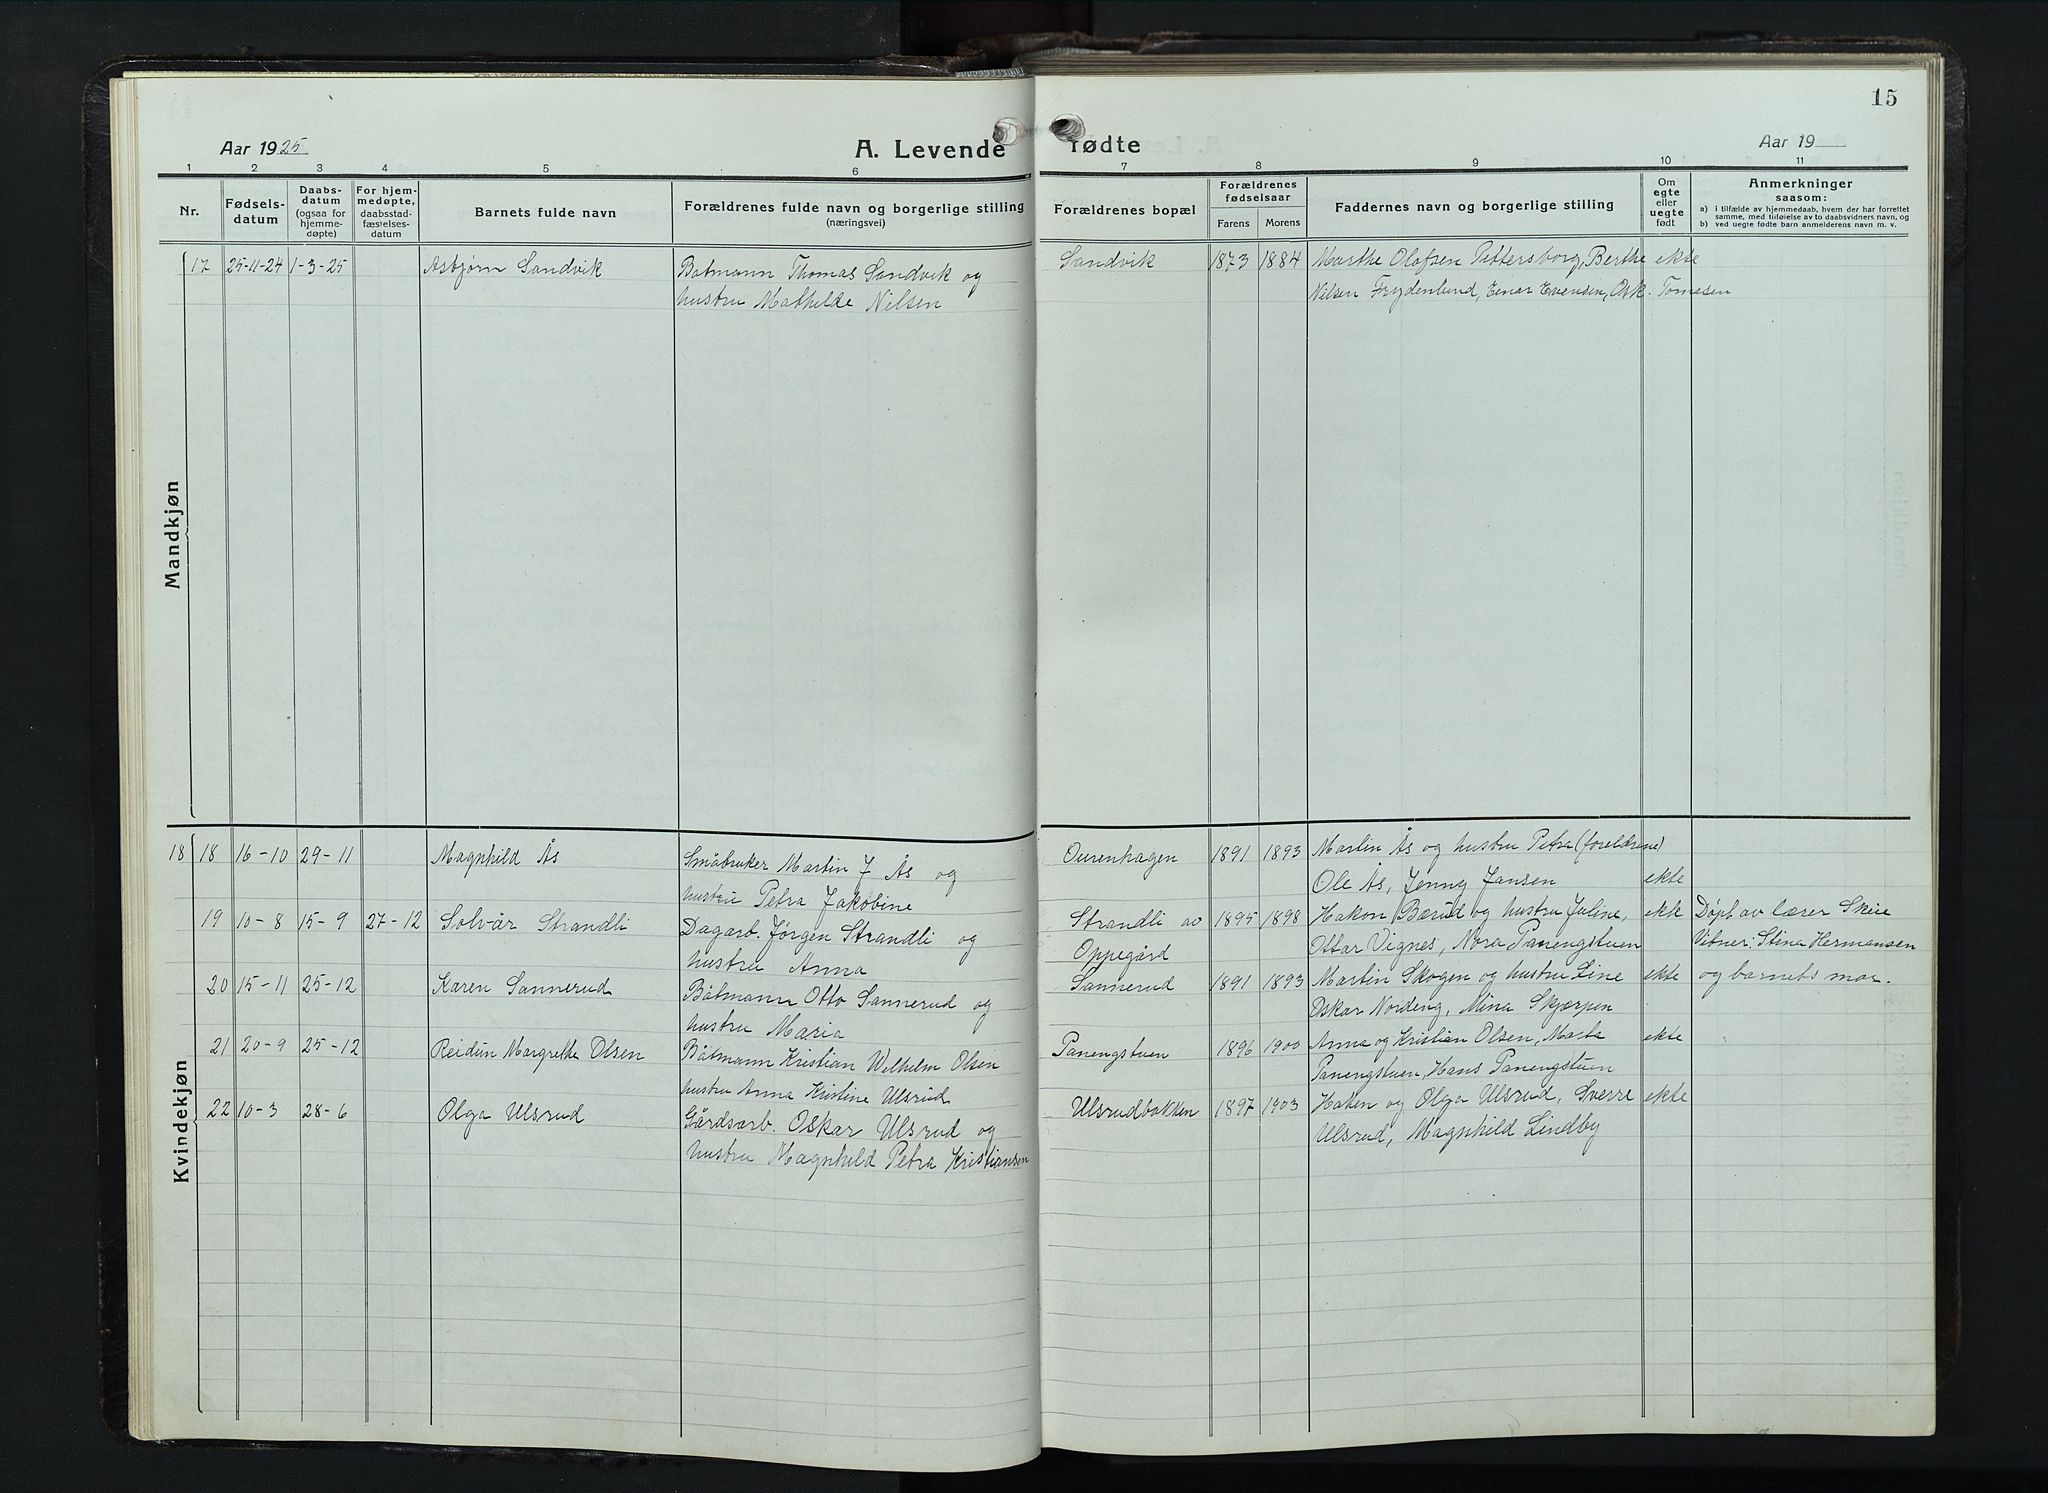 15
Aar 1925
A. Levende
fødte
Aar 19
1 2 3 4 5 6 7 8 9 10 11
Nr.
Fødsels-
datum
Daabs-
datum
(ogsaa for
hjemme-
døpte)
For hjem-
medøpte,
daabsstad-
fæstelses-
datum
Barnets fulde navn
Forældrenes fulde navn og borgerlige stilling
(næringsvei)
Forældrenes bopæl
Forældrenes
fødselsaar
Farens Morens
Faddernes navn og borgerlige stilling
Om
egte
eller
uegte
født
Anmerkninger
saasom:
a) i tilfælde av hjemmedaab, hvem der har forrettet
samme, med tilføielse av to daabsvidners navn, og
b) ved uegte fødte barn anmelderens navn m. v.
Mandkjøn
17 25-11-24 1-3-25 Asbjørn Sandvik Båtmann Thomas Sandvik og Sandvik 1873 1884 Marthe Olafsen Pettersborg, Berthe ekte
hustru Mathilde Nilsen Nilsen Frydenlund, Einar Evensen, Osk. Tomesen
Kvindekjøn
18 18 16-10 29-11 Magnhild Ås Småbruker Martin J Ås og Ourenhagen 1891 1893 Martin Ås og hustru Petra (foreldrene)
hustru Petra Jakobine Ole Ås, Jenny Jansen ekte
19 10-8 15-9 27-12 Solvår Strandli Dagarb. Jørgen Strandli og Strandli av 1895 1898 Hakon Bærud og hustru Juline, ekte Døpt av lærer Skeie
hustru Anna Oppegård Ottar Vignes, Nora Panengstuen Vitner: Stina Hermansen
20 15-11 25-12 Karen Sannerud Båtmann Otto Sannerud og Sannerud 1891 1893 Martin Skogen og hustru Line ekte og barnets mor.
hustru Maria Oskar Nordeng, Mina Skjærpen
21 20-9 25-12 Reidun Margrethe Olsen Båtmann Kristian Wilhelm Olsen Panengstuen 1896 1900 Anna og Kristian Olsen, Marta ekte
hustru Anna Kristine Ulsrud Panengstuen, Hans Panengstuen
22 10-3 28-6 Olga Ulsrud Gårdsarb. Oskar Ulsrud og Ulsrudbakken 1897 1903 Haken og Olga Ulsrud, Sverre ekte
hustru Magnhild Petra Kristiansen Ulsrud, Magnhild Lindby